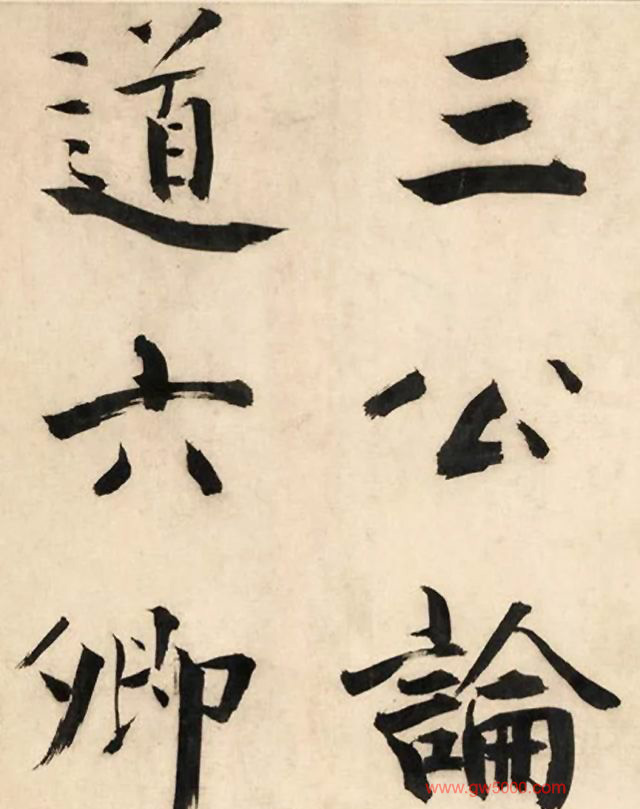 三公論
道六卿
www.gw5000.com